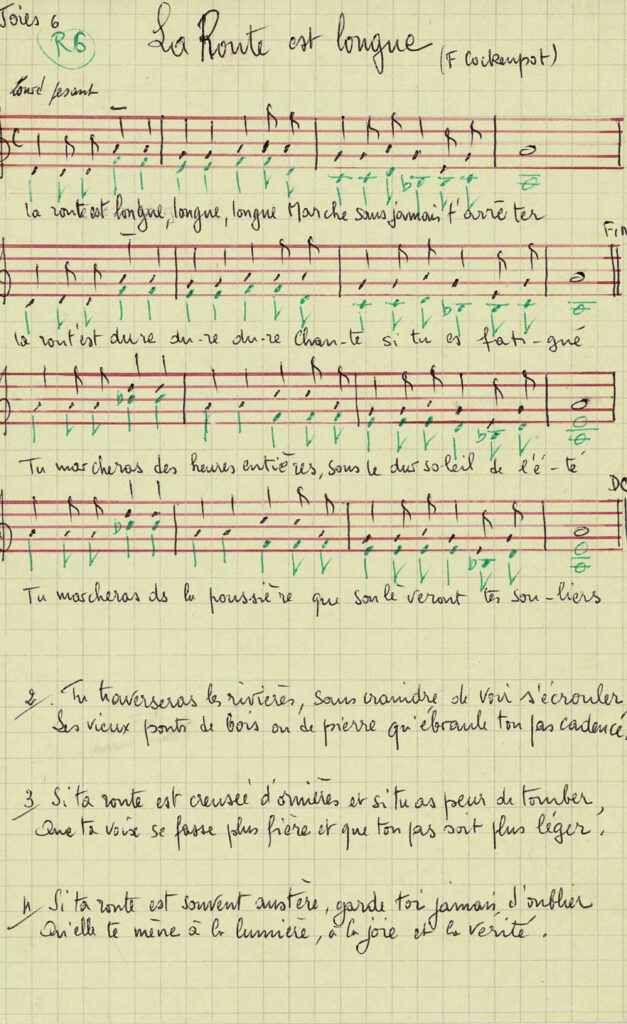 Joies 6
R6
La Route est longue
(F Cockenpot)
lourd pesant
la route est longue, longue, longue Marche sans jamais t'arrêter
FIN
la rout'est dure du-re du-re Chan-te si tu es fati-gué
Tu marcheras des heures entières, sous le dur soleil de l'é-té
DC
Tu marcheras ds la poussière que soulèveront tes sou-liers
2. Tu traverseras les rivières, sans craindre de voir s'écrouler
Les vieux ponts de bois ou de pierre qu'ébranle ton pas cadencé,
3 Si ta route est creusée d'ornières et si tu as peur de tomber,
Que ta voix se fasse plus fière et que ton pas soit plus léger.
4 Si ta route est souvent austère, garde toi jamais d'oublier
Qu'elle te mène à la lumière, à la joie et la vérité.